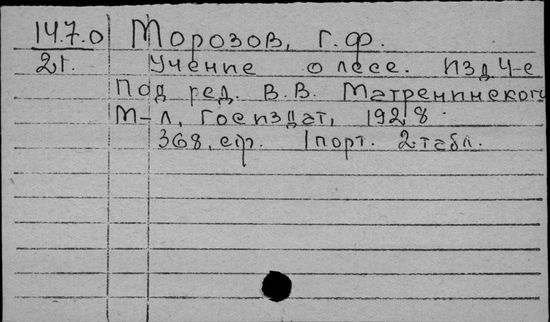 14.7.0 Морозов, Г.Ф.
2г. Учение о лесе. Изд 4-е
Под ред. В.В. Матренинского
М-л, Госиздат, 1928.
368, стр. 1 порт. 2 табл.